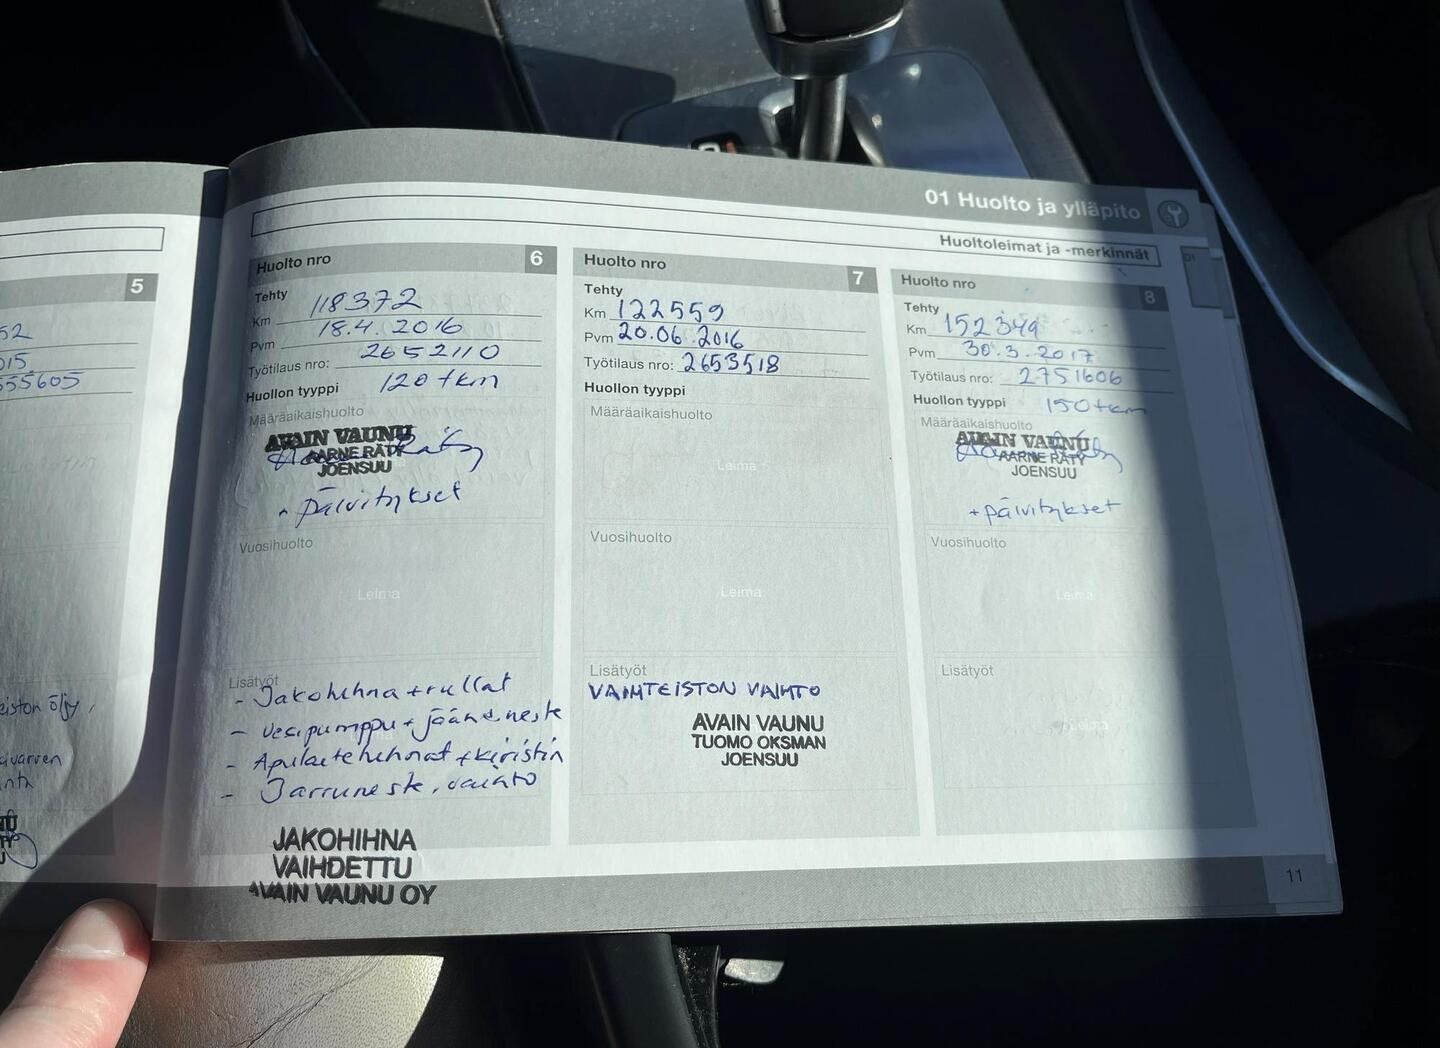 5
52
015
555605
eiston öljy,
01 Huolto ja ylläpito
Huoltoleimat ja -merkinnät
01
Huolto nro 6
Tehty
Km 118372
Pvm 18.4. 2016
Työtilaus nro: 2652110
Huollon tyyppi 120 tkm
Määräaikaishuolto
AVAIN VAUNU
AARNE RÄTY
JOENSUU
+ päivitykset
Vuosihuolto
Leima
Lisätyöt
- Jakohihna + rullat
- Vesipumppu + jäähd.neste
- Apulaitehihnat + kiristin
- Jarruneste. vaihto
JAKOHIHNA
VAIHDETTU
AVAIN VAUNU OY
Huolto nro 7
Tehty
Km 122559
Pvm 20.06.2016
Työtilaus nro: 2653518
Huollon tyyppi
Määräaikaishuolto
Leima
Vuosihuolto
Leima
Lisätyöt
VAIHTEISTON VAIHTO
AVAIN VAUNU
TUOMO OKSMAN
JOENSUU
Huolto nro 8
Tehty
Km 152349
Pvm 30.3.2017
Työtilaus nro: 2751606
Huollon tyyppi 150 tkm
Määräaikaishuolto
AVAIN VAUNU
AARNE RÄTY
JOENSUU
+ päivitykset
Vuosihuolto
Leima
Lisätyöt
Leima
11